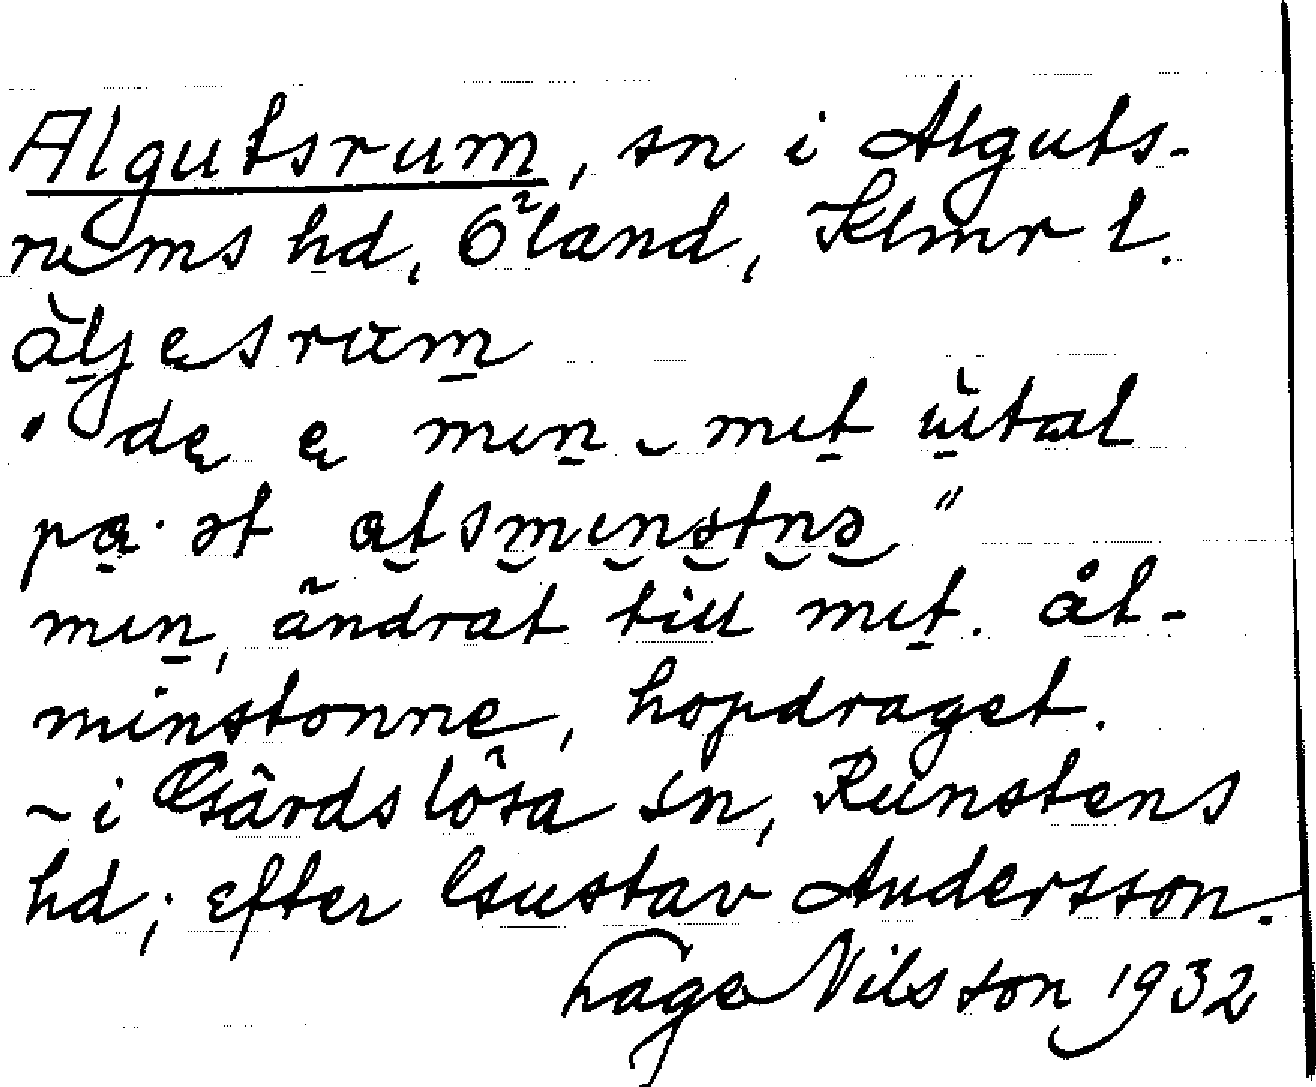 Algutsrum, sn i Alguts-
rums hd, Öland, Klmr l.
àljesrum
"de e min – mit ùtal
pa· ət atsminstnə"
min, ändrat till mit. åt-
minstonne, hopdraget.
~ i Gärdslösa sn, Runstens
hd; efter Gustav Andersson.
Lage Nilsson 1932